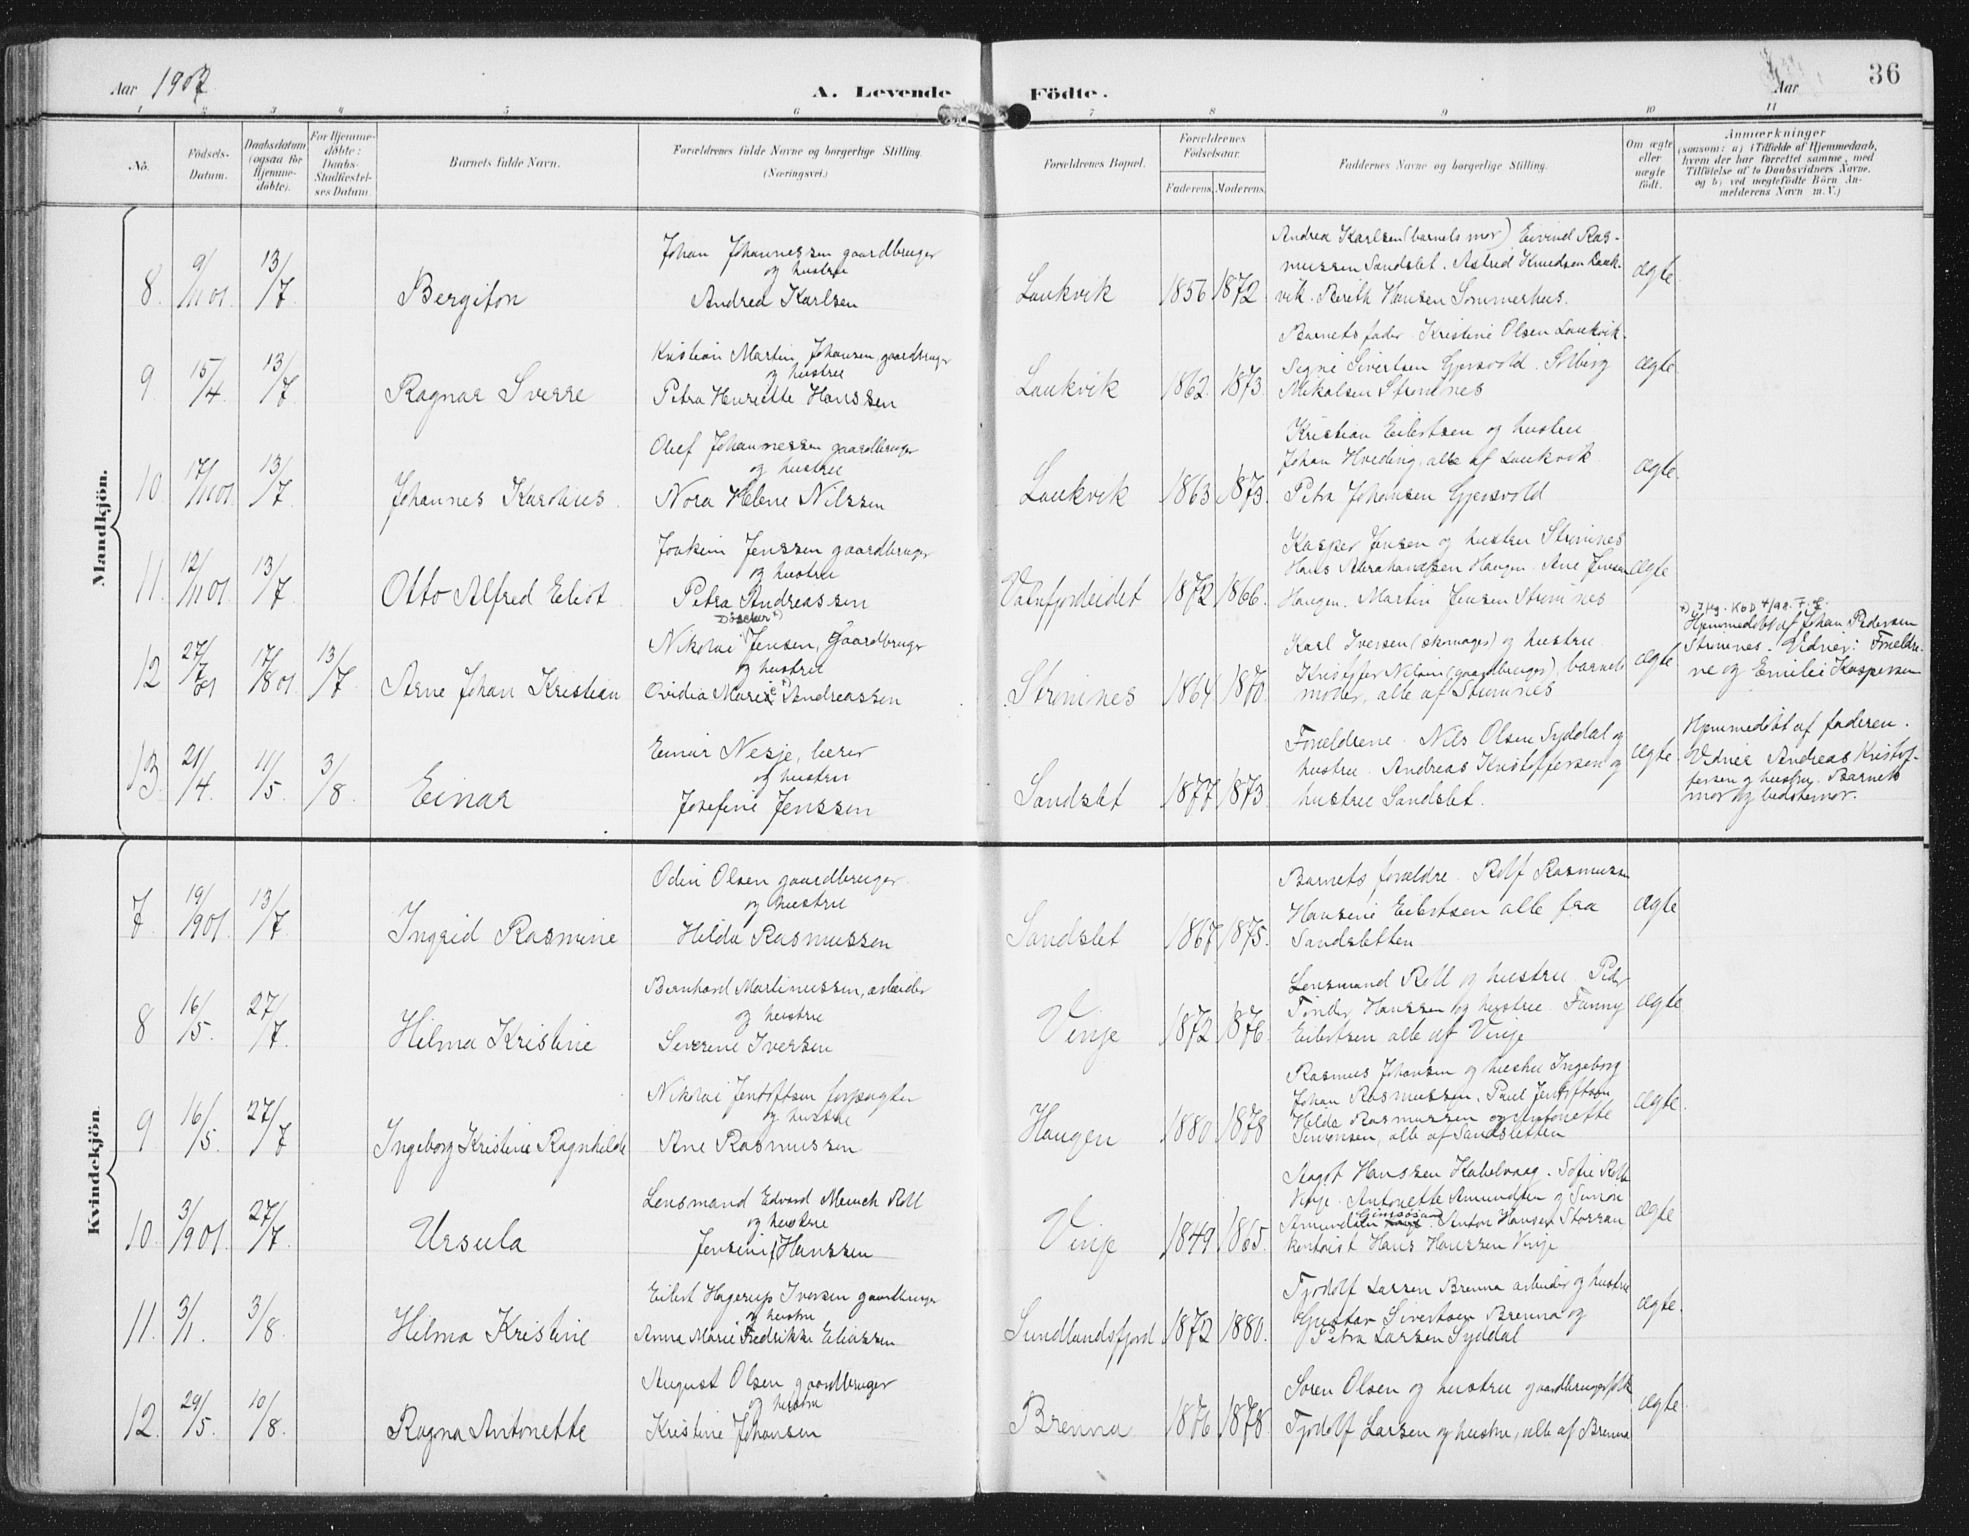 Aar 1902
A. Levende Födte.
Aar
36
1 2 3 4 5 6 7 8 9 10 11
No.
Födsels-Datum.
Daabsdatum (ogsaa for Hjemmedöbte).
For Hjemmedöbte: Daabs-Stadfæstelses Datum.
Barnets fulde Navn.
Forældrenes fulde Navne og borgerlige Stilling.
(Næringsvei.)
Forældrenes Bopæl.
Forældrenes Födselsaar.
Faderens. Moderens.
Faddernes Navne og borgerlige Stilling.
Om ægte eller uægte födt.
Anmærkninger
(saasom: a) i Tilfælde af Hjemmedaab, hvem der har forrettet samme, med Tilföielse af to Daabsvidners Navne, og b) ved uægtefödte Börn Anmelderens Navn m. V.)
Mandkjön.
8. 9/11 01. 13/7 Bergiton
Johan Johannessen gaardbruger
og hustru
Andrea Karlsen
Laukvik 1856 1872
Andrea Karlsen (barnets mor) Eivind Ras-
mussen Sandslet. Astrid Knudsen Lauk-
vik. Berith Hansen Sommerhus.
ægte
9. 15/4. 13/7. Ragnar Sverre
Kristian Martin Johansen, gaardbruger
og hustru
Petra Henriette Hanssen
Laukvik 1862. 1873.
Barnets fader. Kristine Olsen Laukvik.
Signe Sivertsen Gjersvold. Solberg
Mikalsen Strømnes
ægte
10. 17/11 01. 13/7. Johannes Karolius.
Oluf Johannessen gaardbruger
og hustru
Nora Helene Nilssen
Laukvik 1863 1873.
Kristian Eilertsen og hustru
Johan Hveding, alle af Laukvik.
Petra Johansen Gjersvold
ægte
11. 12/11 01. 13/7. Otto Alfred Eliot.
Joakim Jenssen gaardbruger
og hustru
Petra Andreassen
Vatnfjordeidet 1872 1866.
Kasper Jensen og hustru Strømnes
Hans Abrahamssen Haugen. Ane Jensen
Haugen. Martin Jensen Strømnes
ægte
12 27/7 01 17/8 01. 13/7 Arne Johan Kristian
Nikolai Jensen, Gaardbruger
og hustru
Ovidia Marie Andreassen
Strømnes 1864 1870.
Karl Iversen (skomager) og hustru
Kristoffer Nilsen (gaardbruger), barnets
moder, alle af Strømnes
ægte
Hjemmedøbt af Johan Pedersen
Strømnes. Vidner: Forældre-
ne og Emilie Kaspersen
13. 21/4. 11/5. 3/8. Einar
Einar Nesje, lærer
og hustru
Josefine Jenssen
Sandslet 1877 1873
Forældrene. Nils Olsen Syddal og
hustru. Andreas Kristoffersen og
hustru Sandslet.
ægte
Hjemmedøbt af faderen.
Vidner Andreas Kristof-
fersen og hustru. Barnets
mor og bedstemor.
Kvindekjön.
7. 19/9 01. 13/7 Ingrid Rasmine
Odin Olsen gaardbruger.
og hustru
Hilda Rasmussen
Sandslet 1867 1875.
Barnets forældre. Rolf Rasmussen
Hansine Eilertsen alle fra
Sandsletten
ægte
8 16/5. 27/7. Hilma Kristine
Bernhard Martinussen, arbeider
og hustru
Severine Iversen
Vinje 1872 1876
Lensmand Roll og hustru. Peder
Tønder Hanssen og hustru. Fanny
Eilertsen alle af Vinje
ægte
9 16/5. 27/7 Ingeborg Kristine Ragnhilde
Nikolai Jentoftsen forpagter
og hustru
Ane Rasmussen
Haugen 1880 1878
Rasmus Johansen og hustru Ingeborg
Johan Rasmussen. Paul Jentoftsen
Hilda Rasmussen og Antonette
Sivertsen, alle af Sandsletten
ægte.
10. 3/9 01. 27/7. Ursula
Lensmand Edvard Munch Roll
og hustru
Jensine Hanssen
Vinje 1849 1865.
August Hanssen Kabelvaag. Sofie Roll
Vinje. Antonette Amundsen og
Amundsen Gimsøsand. Anton Hansen
Hans Hanssen Vinje
ægte
11. 3/1. 3/8. Hilma Kristine
Eilert Hagerup Iversen gaardbruger
og hustru
Anna Marie Fredrikke Eliassen
Sundlandsfjord 1872 1880.
Tjodolf Larsen Brenna arbeider og hustru
Gustav Sivertsen Brenna og
Petra Larsen Syddal
ægte.
12. 29/5. 10/8. Ragna Antonette
August Olsen gaardbruger
og hustru
Kristine Johansen
Brenna 1876 1878.
Søren Olsen og hustru gaardbrugerfolk
Tjodolf Larsen og hustru, alle af Brenna
ægte.